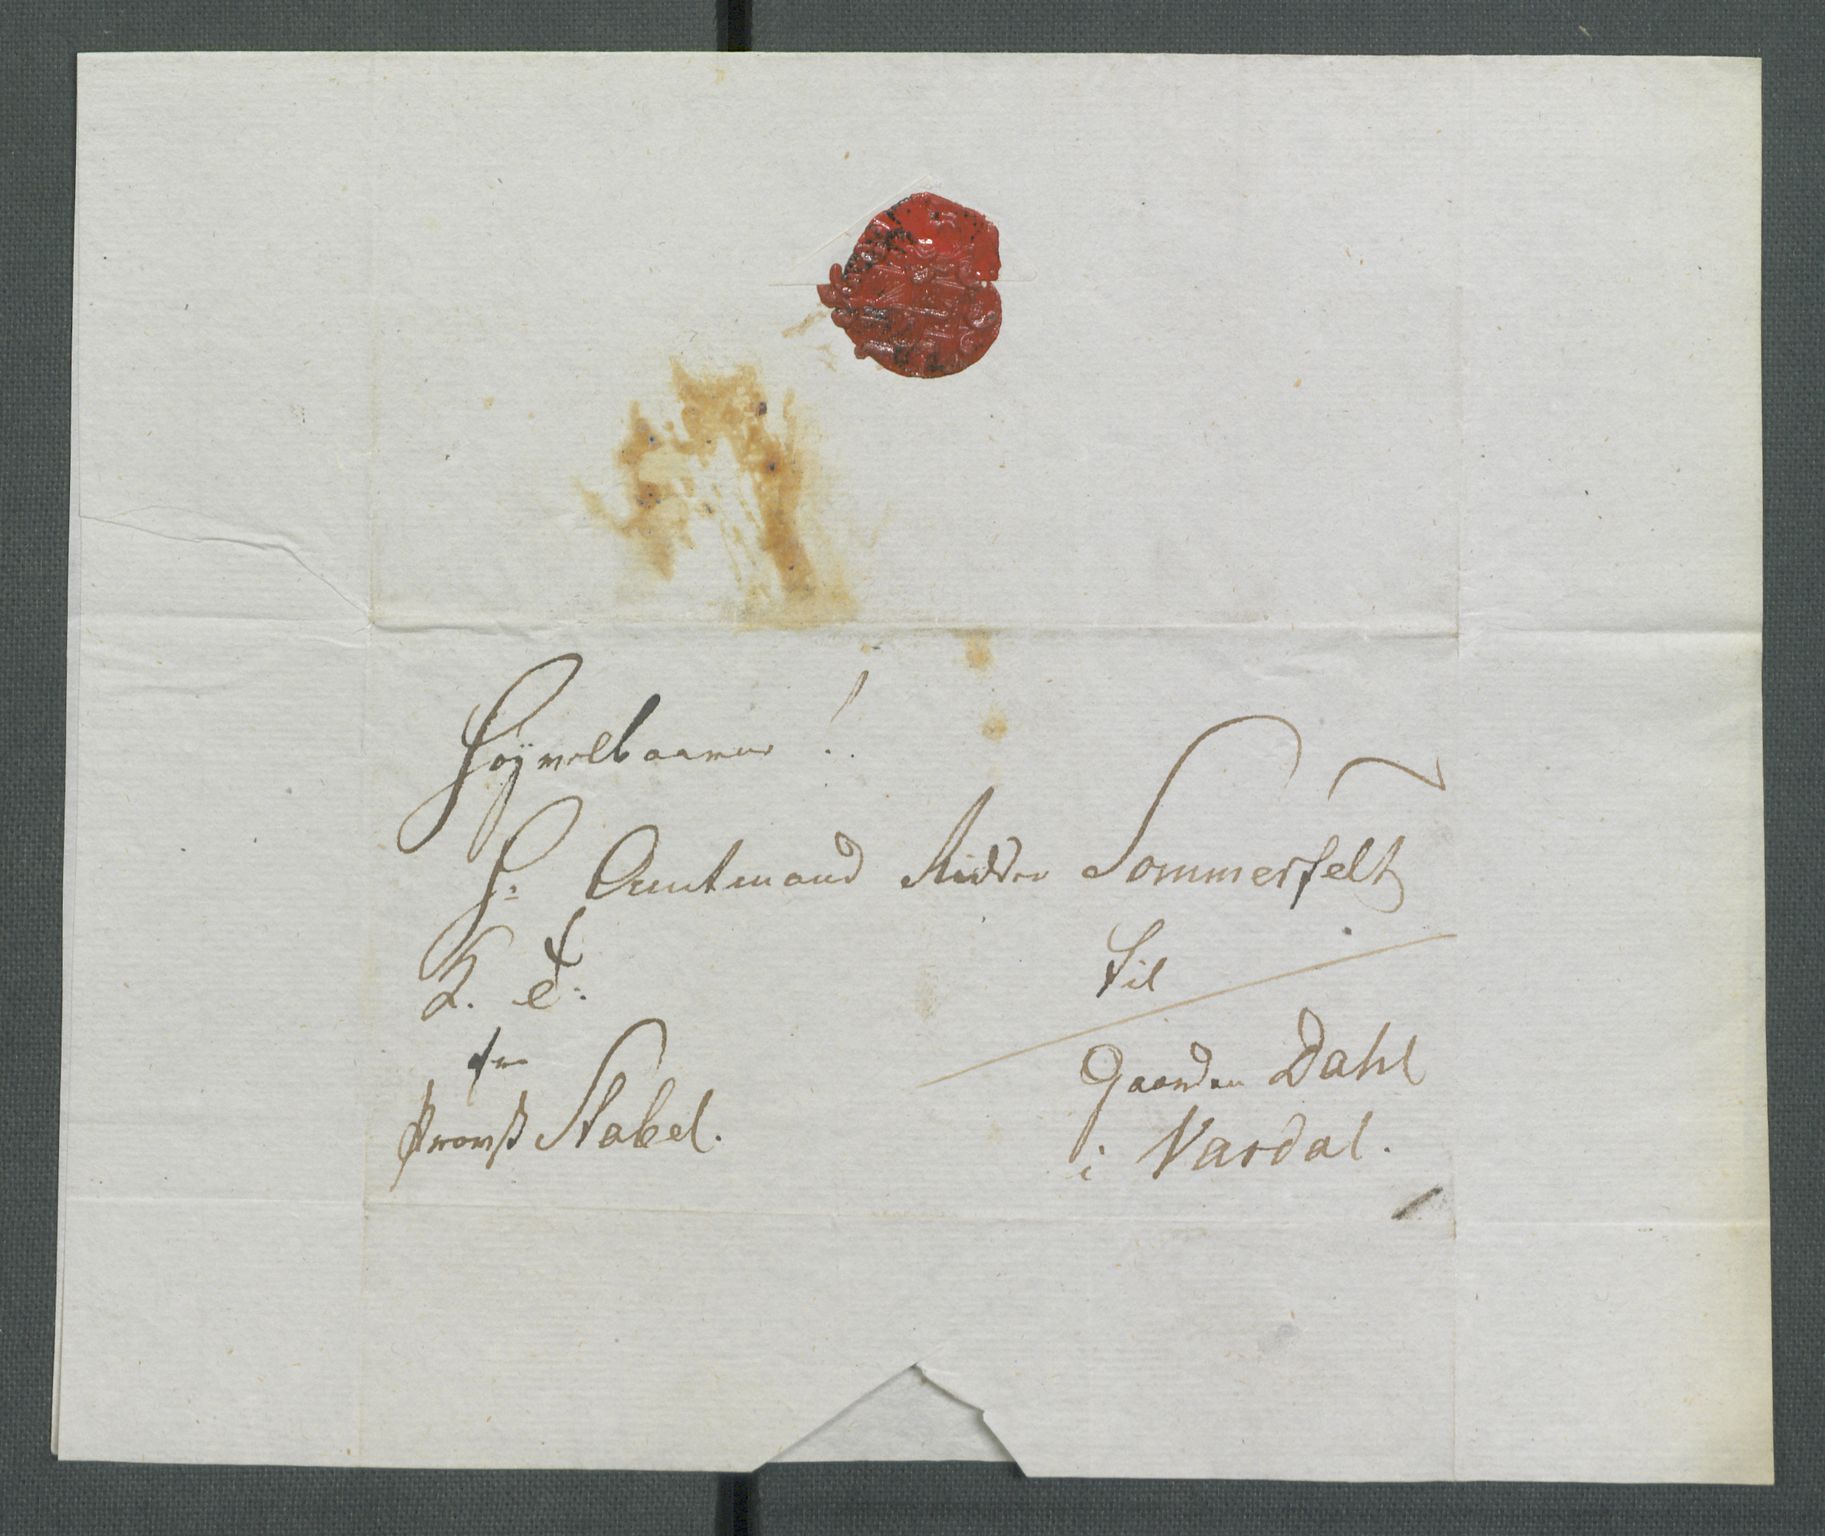 Höyvelbaarne!
H: Amtmand Ridder Sommerfelt
til
fra
Gaarden Dahl
Provst Stabel.
i Vardal.